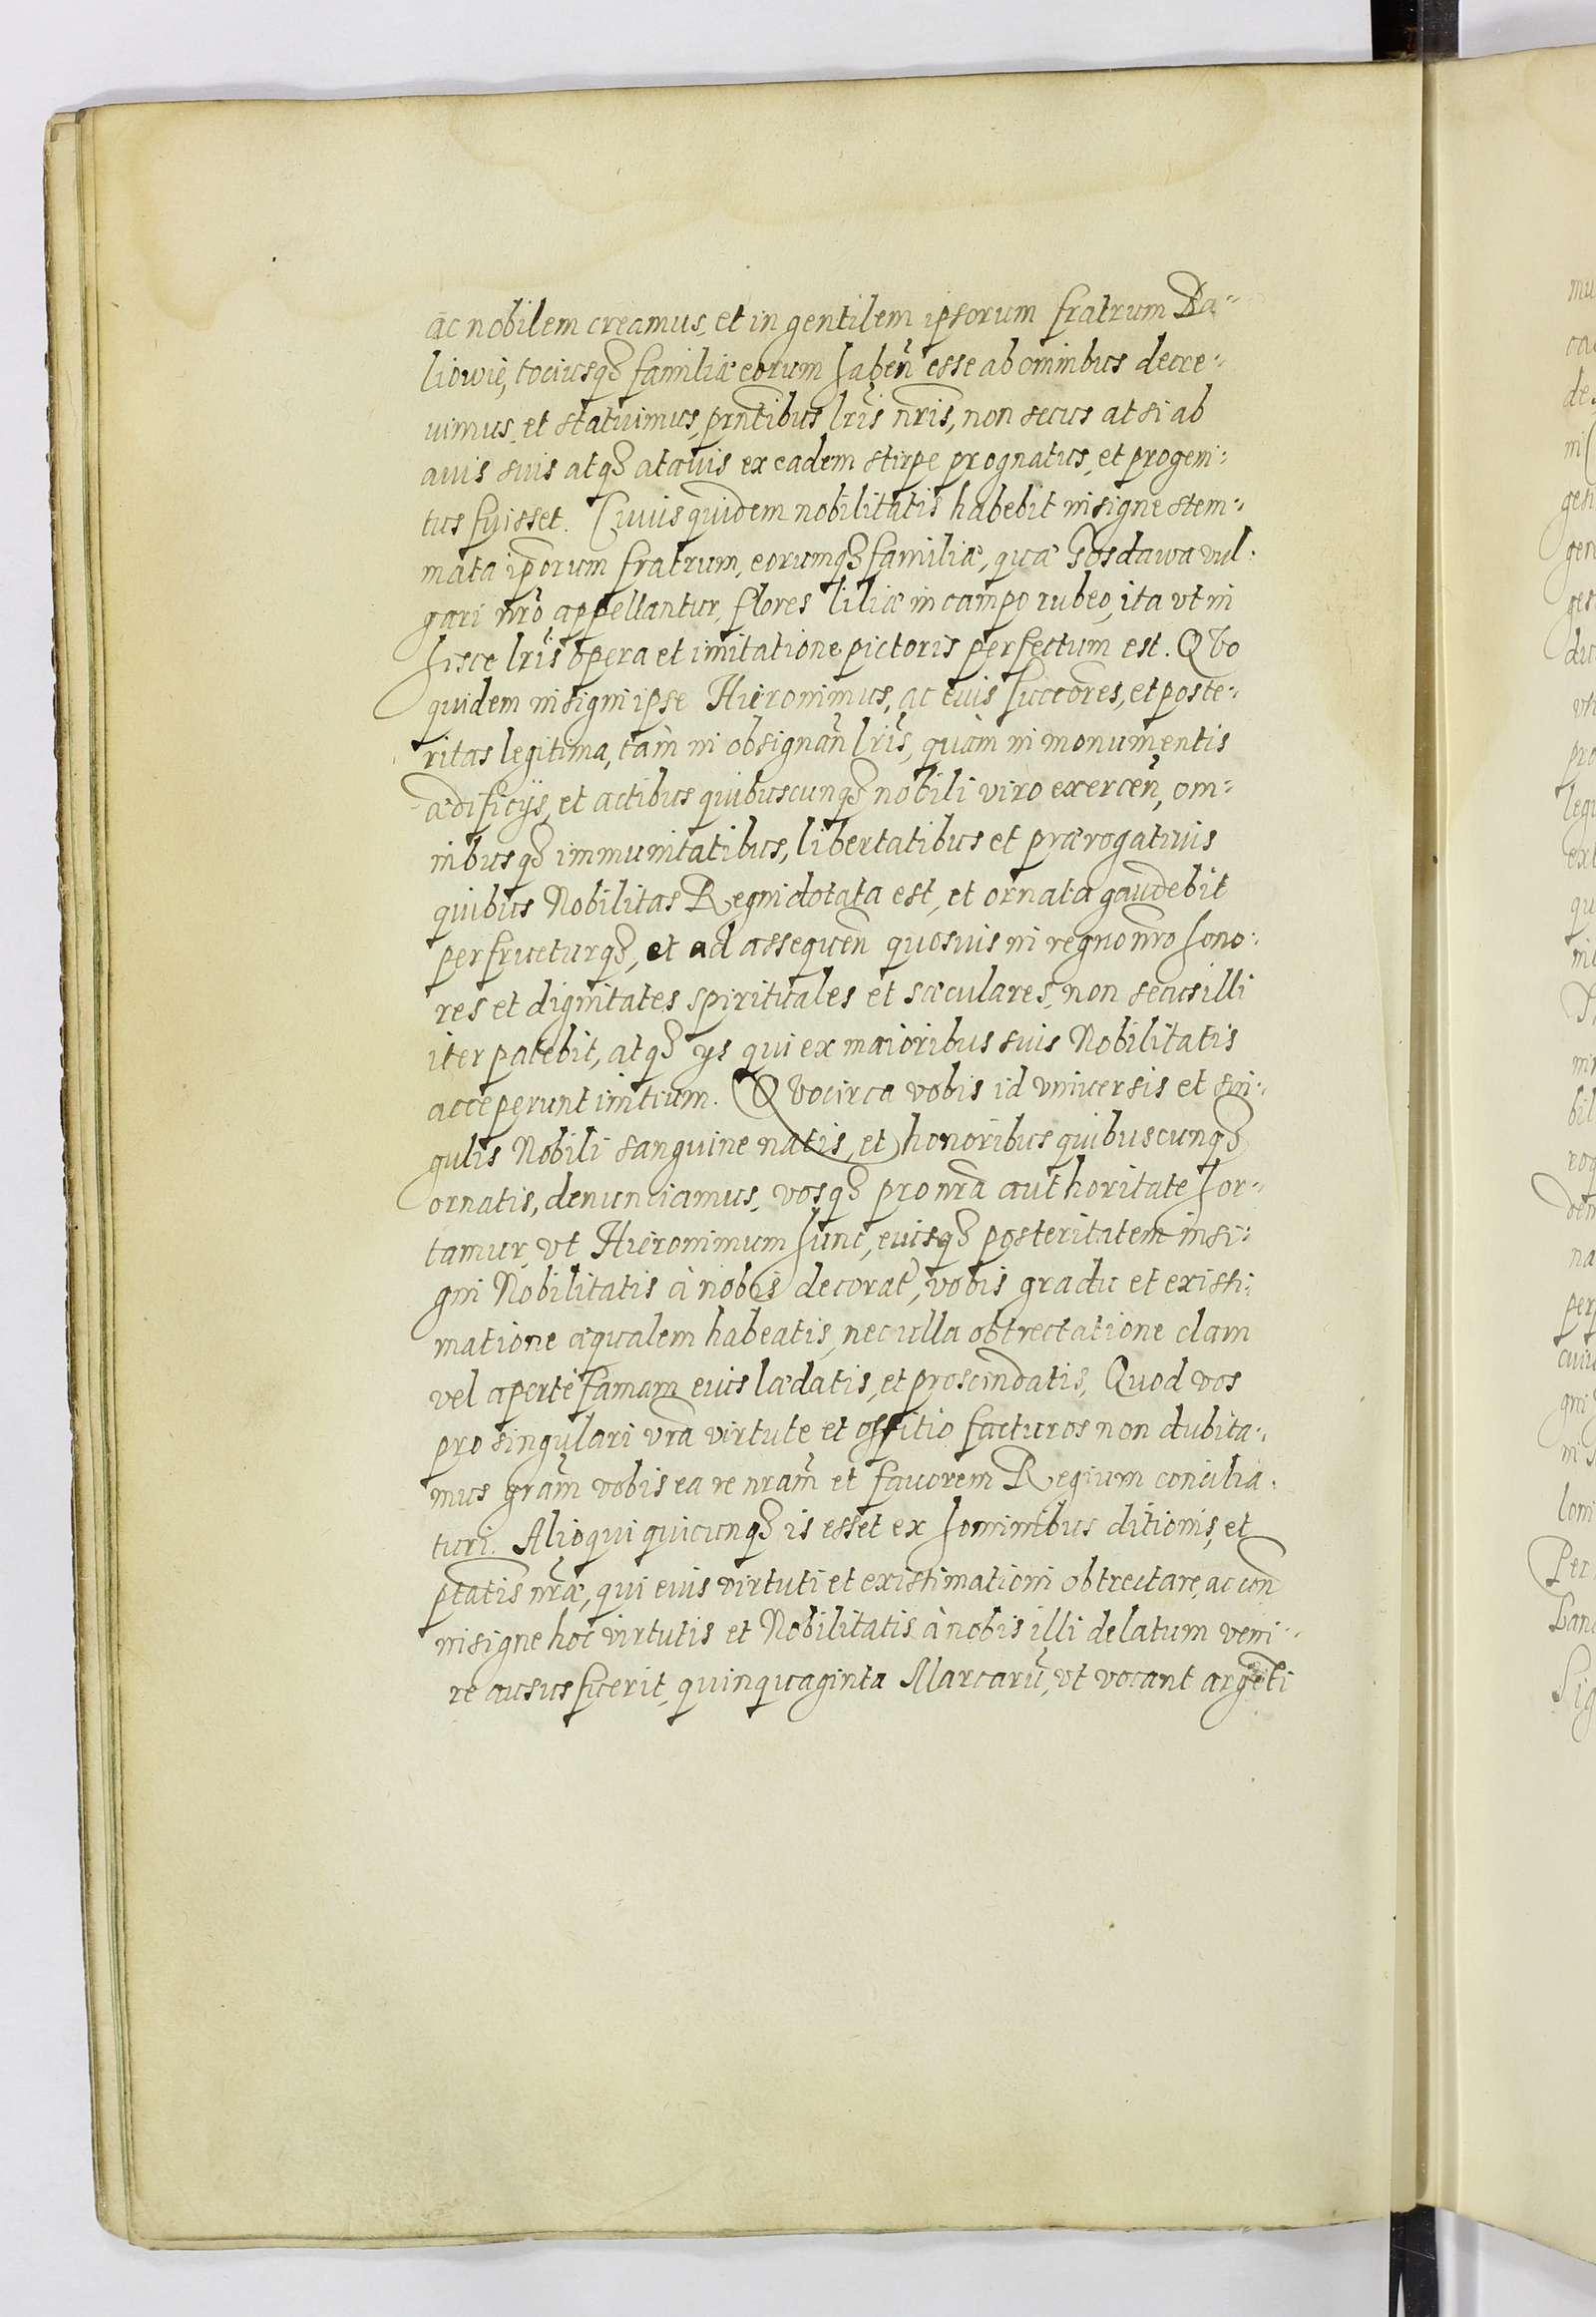 ac nobilem creamus, et in gentilem ipsorum fratrum Da=
liowie, tociusqꝫ familiæ eorum haben̄ esse ab omnibus decre=
uimus, et statuimus, prn̄tibus lr̄is nr̄is, non secus at si ab
auis suis atqꝫ atauis ex eadem stirpe prognatus, et progeni=
tus fuisset. Cuius quidem nobilitatis habebit insigne stem=
mata ip̄orum fratrum, eorumqꝫ familiæ, quæ Gosdawa vul=
gari nr̄o appellantur, flores liliæ in campo rubeo, ita vt in
hisce lr̄is opera et imitatione pictoris perfectum est. QVo
quidem insigni ipse Hieronimus, ac eius succeores, et poste=
ritas legitima, tàm in obsignan̄ lr̄is, quàm in monumentis
ædificijs, et actibus quibuscunqꝫ nobili viro exercen̄, om=
nibusqꝫ immunitatibus, libertatibus et prærogatiuis
quibus Nobilitas Regni dotata est, et ornata gaudebit
perfrueturqꝫ, et ad assequen̄ quosuis in regno nr̄o hono=
res et dignitates spirituales et sæculares, non secus illi
iter patebit, atqꝫ ijs qui ex maioribus suis Nobilitatis
acceperunt initium. QVocirca vobis id vniuersis et sin=
gulis Nobili sanguine natis, et honoribus quibuscunqꝫ
ornatis, denunciamus, vosqꝫ pro nr̄a authoritate hor=
tamur, vt Hieronimum hunc, eiusqꝫ posteritatem insi=
gni Nobilitatis à nobis decorat, vobis gradu et existi=
matione æqualem habeatis, nec ulla obtrectatione clam
vel apertè famam eius lædatis, et proscindatis, Quod vos
pro singulari vr̄a virtute et offitio facturos non dubita=
mus gram̄ vobis ea re nram̄ et fauorem Regium concilia=
turi. Alioqui quicunqꝫ is esset ex hominibus ditionis, et
ptatis nr̄æ, qui eius virtuti et existimationi obtrectare, ac con
insigne hoc virtutis et Nobilitatis à nobis illi delatum veni=
re ausus fuerit, quinquaginta Marcarū, vt vocant argēti